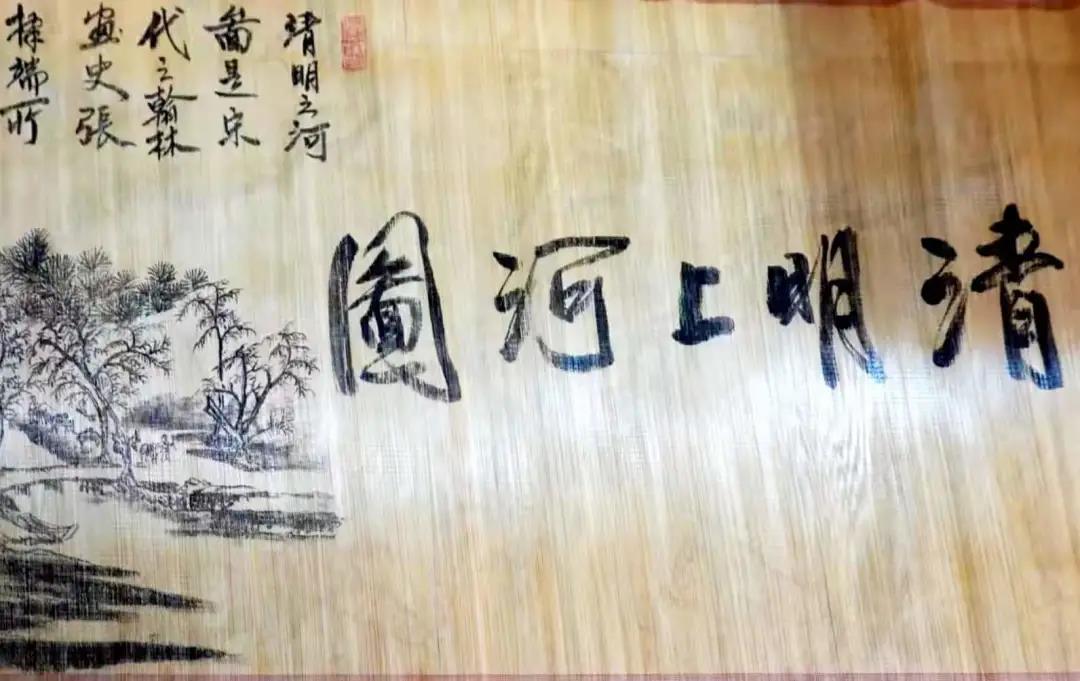 清明上河圖
清明之河
畵是宋
代之翰林
畫史張
擇端所